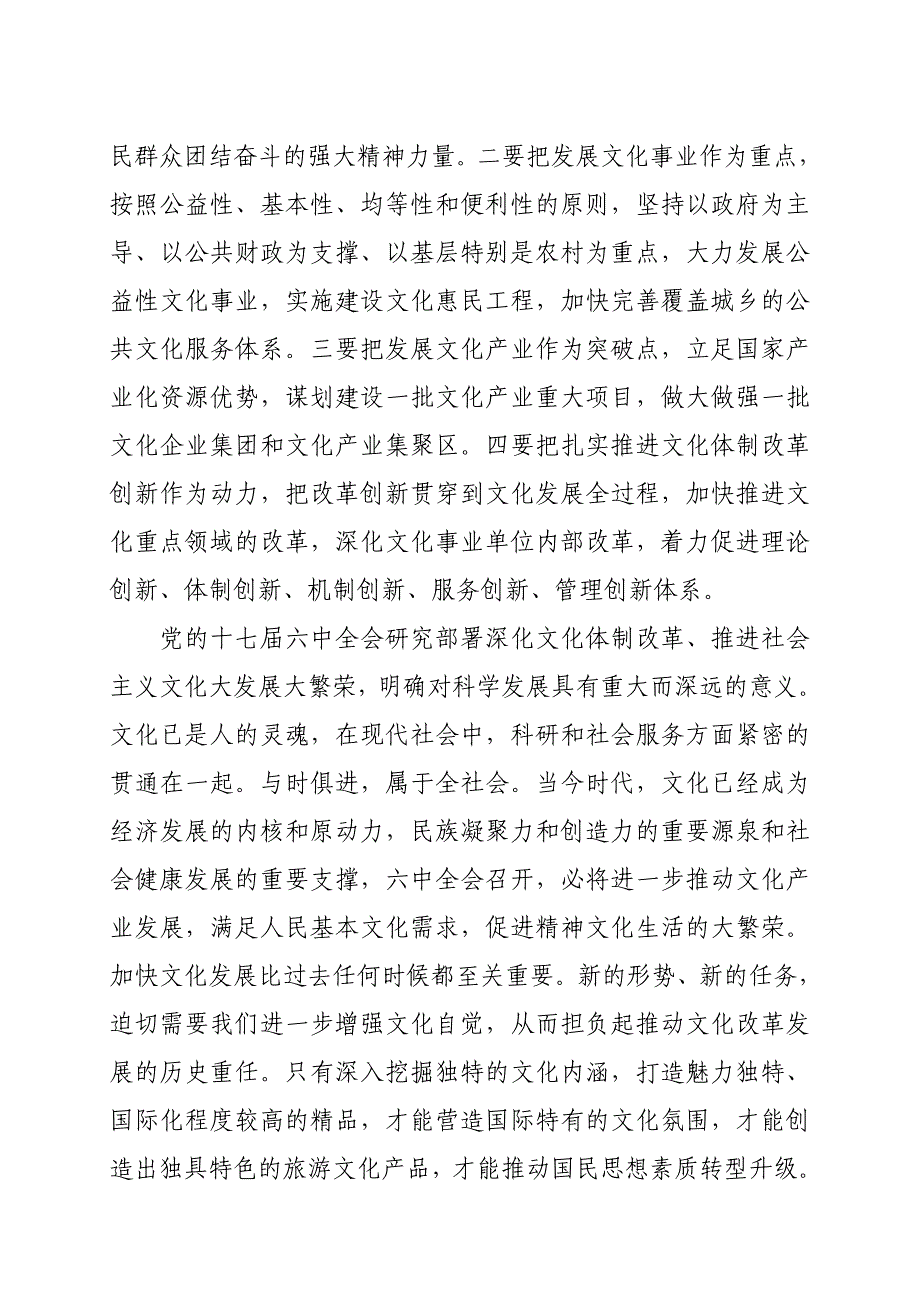 民群众团结奋斗的强大精神力量。二要把发展文化事业作为重点，
按照公益性、基本性、均等性和便利性的原则，坚持以政府为主
导、以公共财政为支撑、以基层特别是农村为重点，大力发展公
益性文化事业，实施建设文化惠民工程，加快完善覆盖城乡的公
共文化服务体系。三要把发展文化产业作为突破点，立足国家产
业化资源优势，谋划建设一批文化产业重大项目，做大做强一批
文化企业集团和文化产业集聚区。四要把扎实推进文化体制改革
创新作为动力，把改革创新贯穿到文化发展全过程，加快推进文
化重点领域的改革，深化文化事业单位内部改革，着力促进理论
创新、体制创新、机制创新、服务创新、管理创新体系。
党的十七届六中全会研究部署深化文化体制改革、推进社会
主义文化大发展大繁荣，明确对科学发展具有重大而深远的意义。
文化已是人的灵魂，在现代社会中，科研和社会服务方面紧密的
贯通在一起。与时俱进，属于全社会。当今时代，文化已经成为
经济发展的内核和原动力，民族凝聚力和创造力的重要源泉和社
会健康发展的重要支撑，六中全会召开，必将进一步推动文化产
业发展，满足人民基本文化需求，促进精神文化生活的大繁荣。
加快文化发展比过去任何时候都至关重要。新的形势、新的任务，
迫切需要我们进一步增强文化自觉，从而担负起推动文化改革发
展的历史重任。只有深入挖掘独特的文化内涵，打造魅力独特、
国际化程度较高的精品，才能营造国际特有的文化氛围，才能创
造出独具特色的旅游文化产品，才能推动国民思想素质转型升级。